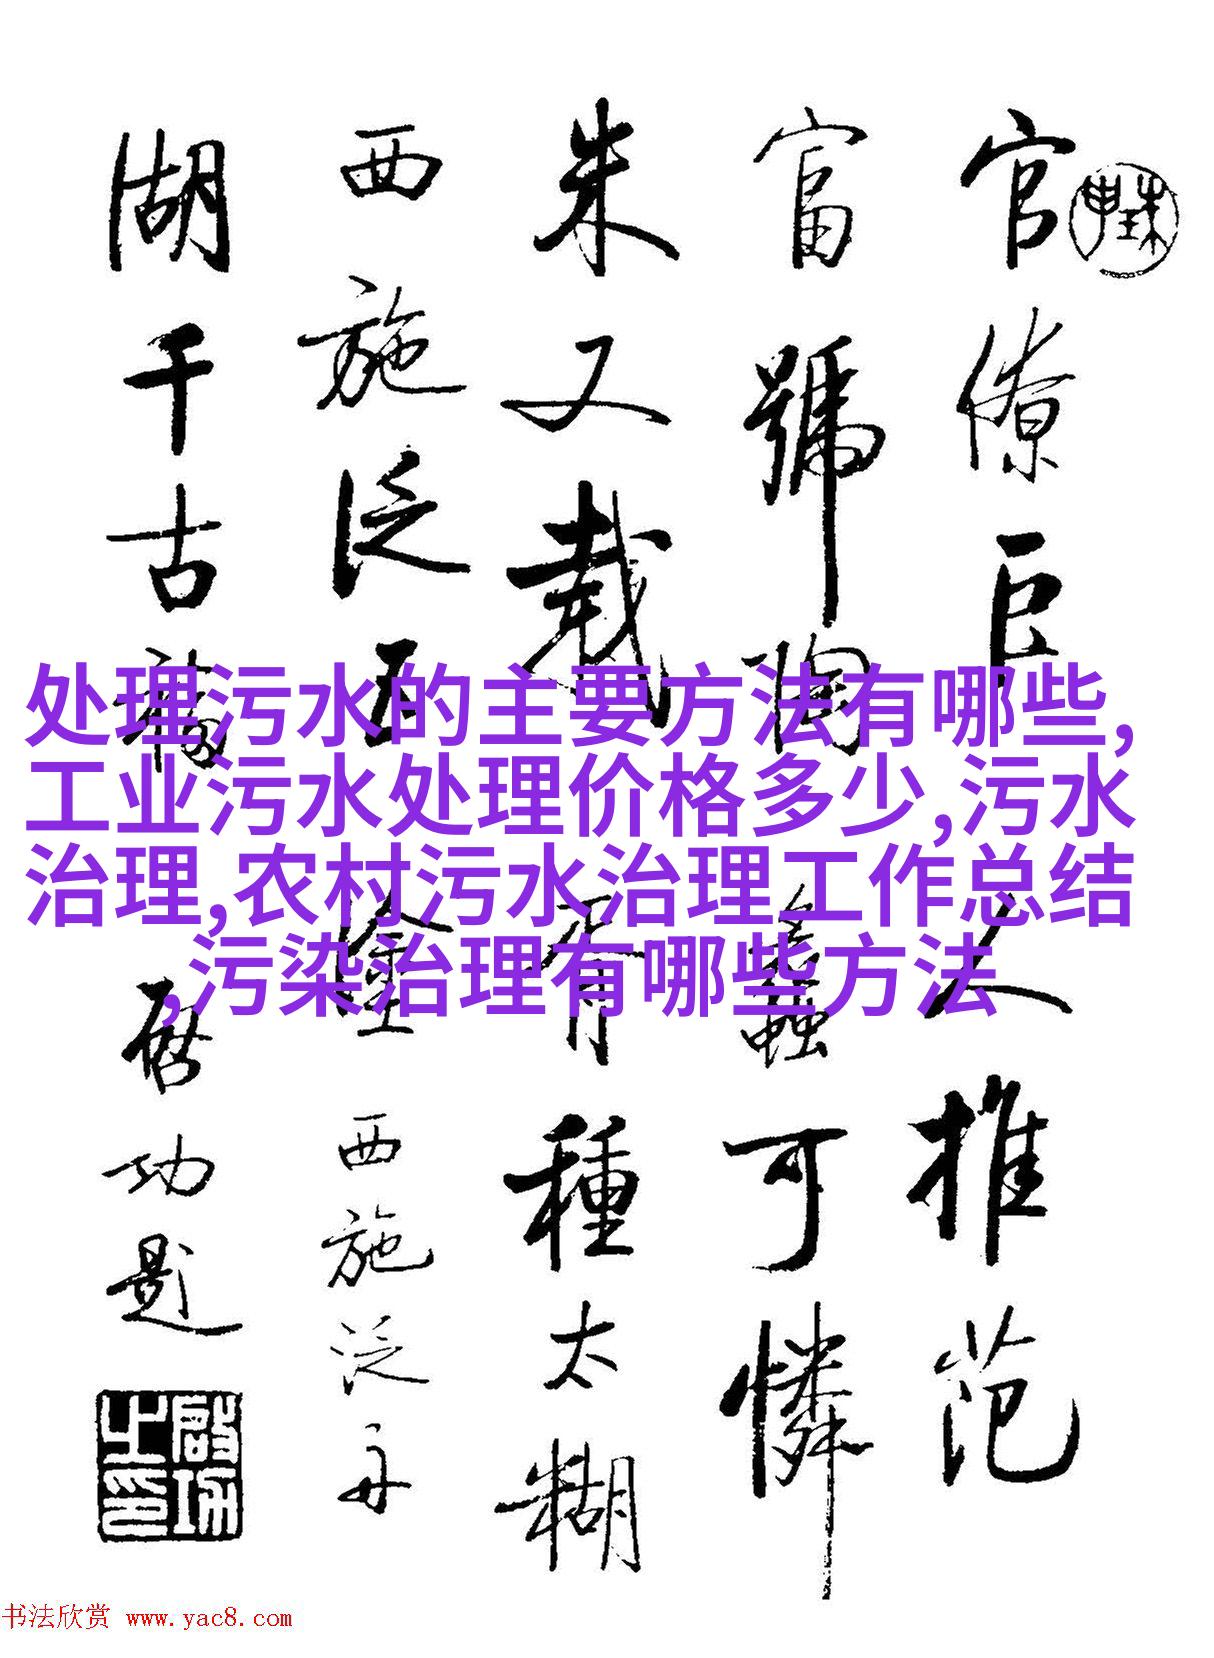 官僚臣人推范
富號陶蠡可憐
朱又栽胥種太糊
西施泛五
湖千古
西施泛舟
啟功題
啟功之印
处理污水的主要方法有哪些,
工业污水处理价格多少,污水
治理,农村污水治理工作总结
,污染治理有哪些方法
书法欣赏 www.yac8.com